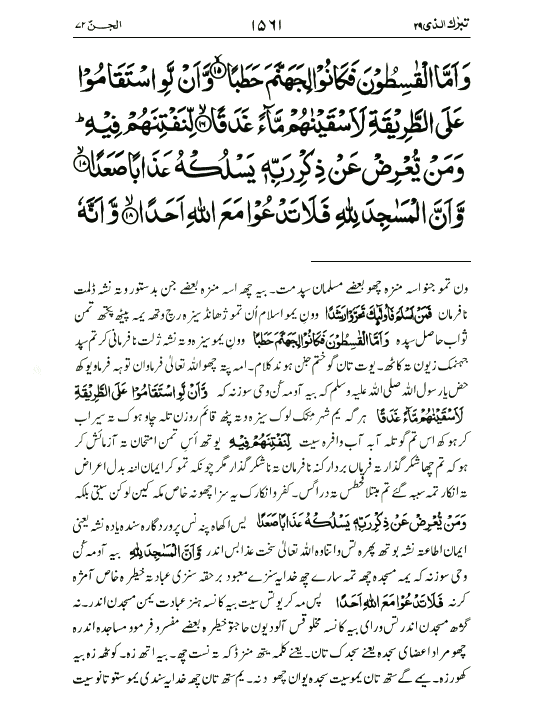 تبرك الذى ٢٩ ١٥٦١ الجنّ ٧٢
وَاَمَّا الْقٰسِطُوْنَ فَكَانُوْا لِجَهَنَّمَ حَطَبًا ۙ۱۵ وَّاَنْ لَّوِ اسْتَقَامُوْا
عَلَى الطَّرِيْقَةِ لَاَسْقَيْنٰهُمْ مَّآءً غَدَقًا ۙ۱۶ لِّنَفْتِنَهُمْ فِيْهِ ؕ
وَمَنْ يُّعْرِضْ عَنْ ذِكْرِ رَبِّهٖ يَسْلُكْهُ عَذَابًا صَعَدًا ۙ۱۷
وَّاَنَّ الْمَسٰجِدَ لِلّٰهِ فَلَا تَدْعُوْا مَعَ اللّٰهِ اَحَدًا ۙ۱۸ وَّاَنَّهٗ
ون تمو جنو اسہ منزہ چھو بعضے مسلمان سپدمت۔ بیہ چھہ اسہ منزہ بعضے جن بدستور وتہ نشہ ڈلمت
نافرمان فَمَنْ اَسْلَمَ فَاُولٰٓئِكَ تَحَرَّوْا رَشَدًا وون یمو اسلام اُن تمو ژھانڈ سیزہ رچ وتھہ یمہ پیٹھ پکتھ تمن
ثواب حاصل سپدہ وَاَمَّا الْقٰسِطُوْنَ فَكَانُوْا لِجَهَنَّمَ حَطَبًا وون یمو سیزہ وتہ نشہ ژلت نافرمانی کر تم سپد
جہنمک زیون تہ کاٹھ۔ یوت تان گو ختم جنن ہند کلام۔ امہ پتہ چھو اللہ تعالیٰ فرماون توہہ فرماویوکھ
حض یا رسول اللہ صلی اللہ علیہ وسلم کہ بیہ آو مہ کن وحی سوزنہ کہ وَاَنْ لَّوِ اسْتَقَامُوْا عَلَى الطَّرِيْقَةِ
لَاَسْقَيْنٰهُمْ مَّآءً غَدَقًا ہرگہ یم شہر مکک لوک سیزہ وتہ پٹھ قائم روزن تلہ چاوہوکھ تہ سیراب
کرہوکھ اس تم گوتلہ آبہ آب وافرہ سیت لِنَفْتِنَهُمْ فِيْهِ یوتھ اُس تمن امتحان تہ آزمائش کر
ہوکہ تم چھا شکر گذار تہ فرمان بردار کنہ نافرمان تہ ناشکر گذار مگر چونکہ تمو کر ایمان اننہ بدل اعراض
تہ انکار تمہ سببہ گئے تم مبتلا قحطس تہ دراگس۔ کفر و انکارک یہ سزا چھونہ خاص مکہ کین لوکن سیتی بلکہ
وَمَنْ يُّعْرِضْ عَنْ ذِكْرِ رَبِّهٖ يَسْلُكْهُ عَذَابًا صَعَدًا یس اکھاہ پنہ نس پروردگارہ سندہ یادہ نشہ یعنی
ایمان اطاعتہ نشہ بوتھ پھرہ تس واتناوہ اللہ تعالیٰ سخت عذابس اندر وَّاَنَّ الْمَسٰجِدَ لِلّٰهِ بیہ آو مہ کن
وحی سوزنہ کہ یمہ مسجدہ چھہ تمہ سارے چھہ خدایہ سنزے معبود برحقہ سنزی عبادتہ خیطرہ خاص آمژہ
کرنہ فَلَا تَدْعُوْا مَعَ اللّٰهِ اَحَدًا پس مہ کریو تس سیت بیہ کانسہ ہنز عبادت یمن مسجدن اندر۔ نہ
گژھہ مسجدن اندر تس ورای بیہ کانسہ مخلوقس آلو دیون حاجتو خیطرہ بعضے مفسرو فرموو مساجدہ اندرہ
چھو مراد اعضای سجدہ یعنے سجدک تان۔ یعنے کلمہ یتھ منز ڈکہ تہ نست چھ۔ بیہ اتھہ زہ۔ کوٹھہ زہ بیہ
کھور زہ۔ یمے گے ستھ تان یمو سیت سجدہ یوان چھو دنہ۔ یم ستھ تان چھہ خدایہ سندی یموستو تانو سیت